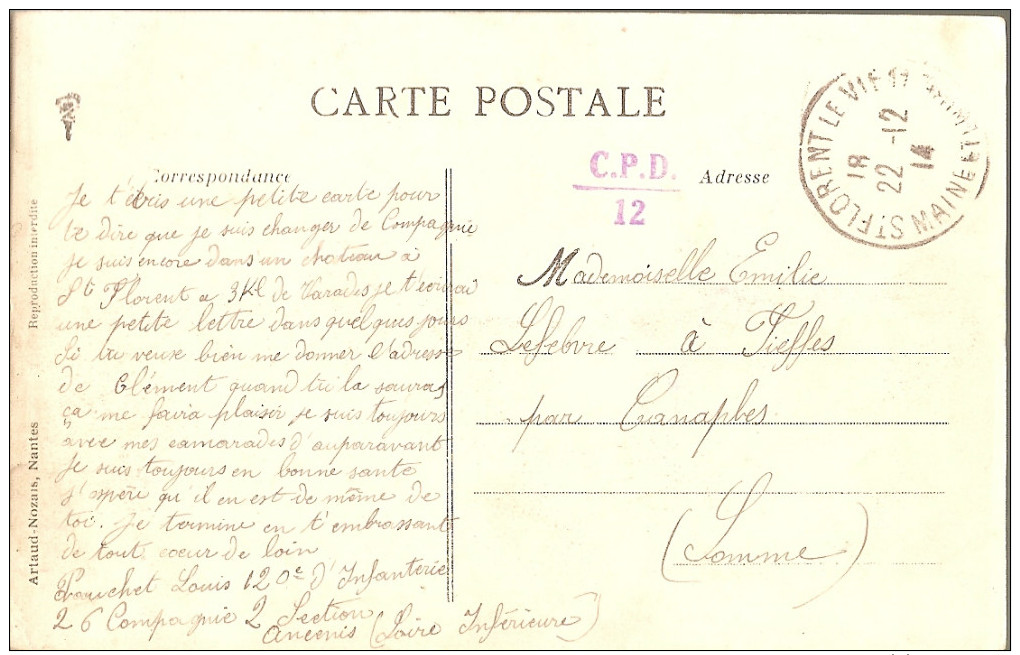 CARTE POSTALE
Correspondance
C.P.D.
12
Adresse
ST FLORENT LE VIEIL MAINE ET LOIRE
18
22 -12
14
Je t'écris une petite carte pour
te dire que je suis changer de Compagnie
je suis encore dans un chateau à
St Florent a 3Kl de Varades je t'écrirai
une petite lettre dans quelques jours
Si tu veuse bien me donner l'adresse
de Clément quand tu la sauras
ça me faira plaisir je suis toujours
avec mes camarades d'auparavant
Je suis toujours en bonne santé
j'espère qu'il en est de même de
toi. Je termine en t'embrassant
de tout coeur de loin
Louis 120e d'Infanterie
26 Compagnie 2 Section
Ancenis (Loire Inférieure)
Mademoiselle Emilie
Lefebvre à Fieffes
par Canaples
(Somme)
Reproduction interdite
Artaud-Nozais, Nantes